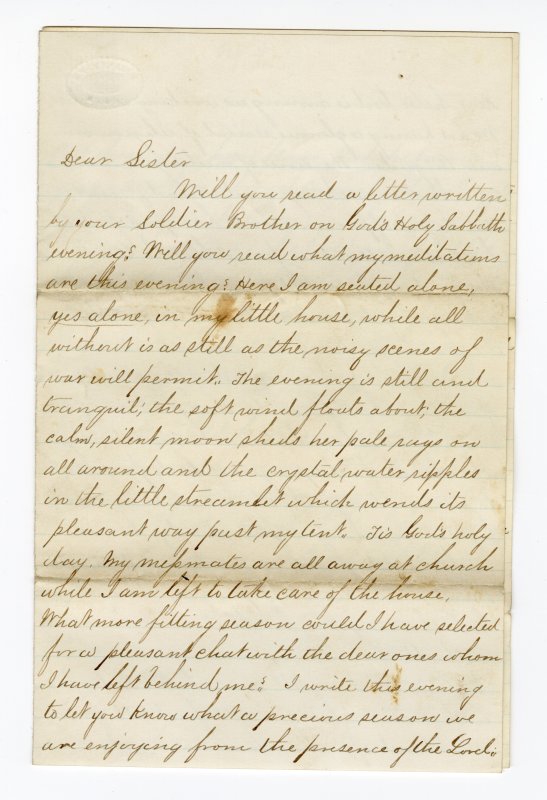 Dear Sister
Will you read a letter written
by your Soldier Brother on God's Holy Sabbath
evening? Will you read what my meditations
are this evening? Here I am seated alone,
yes alone, in my little house, while all
without is as still as the noisy scenes of
war will permit. The evening is still and
tranquil; the soft wind floats about; the
calm, silent moon sheds her pale rays on
all around and the crystal water ripples
in the little streamlet which wends its
pleasant way past my tent. Tis God's holy
day. My messmates are all away at church
while I am left to take care of the house.
What more fitting season could I have selected
for a pleasant chat with the dear ones whom
I have left behind me? I write this evening
to let you know what a precious season we
are enjoying from the presence of the Lord.